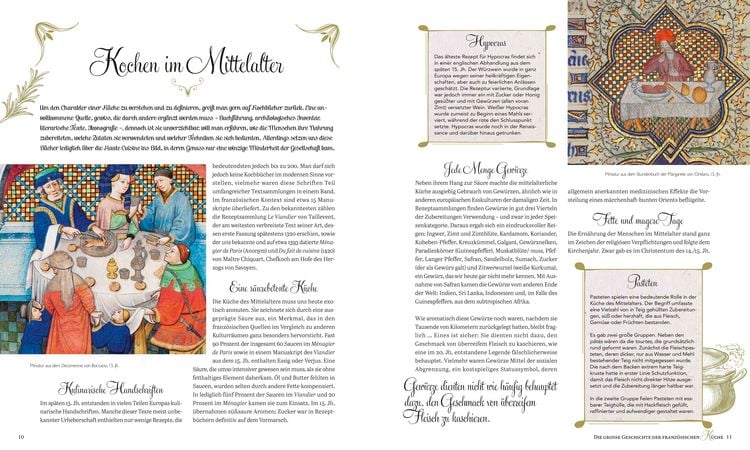 Kochen im Mittelalter
Um den Charakter einer Küche zu verstehen und zu definieren, greift man gern auf Kochbücher zurück. Eine un-
vollkommene Quelle, gewiss, die durch andere ergänzt werden muss – Buchführung, archäologisches Inventar,
literarische Texte, Ikonografie –, dennoch ist sie unverzichtbar, will man erfahren, wie die Menschen ihre Nahrung
zubereiteten, welche Zutaten sie verwendeten und welcher Techniken sie sich bedienten. Allerdings setzen uns diese
Bücher lediglich über die Haute Cuisine ins Bild, in deren Genuss nur eine winzige Minderheit der Gesellschaft kam.
Miniatur aus dem Decamerone von Boccaccio, 15. Jh.
Kulinarische Handschriften
Im späten 13. Jh. entstanden in vielen Teilen Europas kuli-
narische Handschriften. Manche dieser Texte meist unbe-
kannter Urheberschaft enthielten nur wenige Rezepte, die
bedeutendsten jedoch bis zu 200. Man darf sich
jedoch keine Kochbücher im modernen Sinne vor-
stellen, vielmehr waren diese Schriften Teil
umfangreicher Textsammlungen in einem Band.
Im französischen Kontext sind etwa 15 Manu-
skripte überliefert. Zu den bekanntesten zählen
die Rezeptsammlung Le Viandier von Taillevent,
der am weitesten verbreitete Text seiner Art, des-
sen erste Fassung spätestens 1320 erschien, sowie
der uns bekannte und auf etwa 1393 datierte Ména-
gier de Paris (Anonym) und Du fait de cuisine (1420)
von Maître Chiquart, Chefkoch am Hofe des Her-
zogs von Savoyen.
Eine säurebetonte Küche
Die Küche des Mittelalters muss uns heute exo-
tisch anmuten. Sie zeichnete sich durch eine aus-
geprägte Säure aus, ein Merkmal, das in den
französischen Quellen im Vergleich zu anderen
Kulturräumen ganz besonders hervorsticht. Fast
90 Prozent der insgesamt 60 Saucen im Ménagier
de Paris sowie in einem Manuskript des Viandier
aus dem 15. Jh. enthalten Essig oder Verjus. Eine
Säure, die umso intensiver gewesen sein muss, als sie ohne
fetthaltiges Element daherkam. Öl und Butter fehlten in
Saucen, wurden selten durch andere Fette kompensiert.
In lediglich fünf Prozent der Saucen im Viandier und 20
Prozent im Ménagier kamen sie zum Einsatz. Im 15. Jh.
übernahmen süßsaure Aromen; Zucker war in Rezept-
büchern definitiv auf dem Vormarsch.
10
Hypocras
Das älteste Rezept für Hypocras findet sich
in einer englischen Abhandlung aus dem
späten 13. Jh. Der Würzwein wurde in ganz
Europa wegen seiner heilkräftigen Eigen-
schaften, aber auch zu feierlichen Anlässen
geschätzt. Die Rezeptur variierte, Grundlage
war jedoch immer ein mit Zucker oder Honig
gesüßter und mit Gewürzen (allen voran
Zimt) versetzter Wein. Weißer Hypocras
wurde zumeist zu Beginn eines Mahls ser-
viert, während der rote den Schlusspunkt
setzte. Hypocras wurde noch in der Renais-
sance und darüber hinaus getrunken.
Jede Menge Gewürze
Neben ihrem Hang zur Säure machte die mittelalterliche
Küche ausgiebig Gebrauch von Gewürzen, ähnlich wie in
anderen europäischen Esskulturen der damaligen Zeit. In
Rezeptsammlungen finden Gewürze in gut drei Vierteln
der Zubereitungen Verwendung – und zwar in jeder Spei-
senkategorie. Daraus ergab sich ein eindrucksvoller Rei-
gen: Ingwer, Zimt und Zimtblüte, Kardamom, Koriander,
Kubeben-Pfeffer, Kreuzkümmel, Galgant, Gewürznelken,
Paradieskörner (Guineapfeffer), Muskat(blüte) muss, Pfef-
fer, Langer Pfeffer, Safran, Sandelholz, Sumach, Zucker
(der als Gewürz galt) und Zitwerwurzel (weiße Kurkuma),
ein Gewürz, das wir heute gar nicht mehr kennen. Mit Aus-
nahme von Safran kamen die Gewürze vom anderen Ende
der Welt: Indien, Sri Lanka, Indonesien und, im Falle des
Guineapfeffers, aus dem subtropischen Afrika.
Wie aromatisch diese Gewürze noch waren, nachdem sie
Tausende von Kilometern zurückgelegt hatten, bleibt frag-
lich ... Eines ist sicher: Sie dienten nicht dazu, den
Geschmack von überreifem Fleisch zu kaschieren, wie
eine im 20. Jh. entstandene Legende fälschlicherweise
behauptet. Vielmehr waren Gewürze Mittel der sozialen
Abgrenzung, ein kostspieliges Statussymbol, deren
Gewürze dienten nicht wie häufig behauptet
dazu, den Geschmack von überreifem
Fleisch zu kaschieren.
Miniatur aus dem Stundenbuch der Margarete von Orléans, 15. Jh.
allgemein anerkannten medizinischen Effekte die Vor-
stellung eines märchenhaft bunten Orients beflügelte.
Fette und magere Tage
Die Ernährung der Menschen im Mittelalter stand ganz
im Zeichen der religiösen Verpflichtungen und folgte dem
Kirchenjahr. Zwar gab es im Christentum des 14./15. Jh.
Pasteten
Pasteten spielen eine bedeutende Rolle in der
Küche des Mittelalters. Der Begriff umfasste
eine Vielzahl von in Teig gehüllten Zuberei-
tungen, süß oder herzhaft, die aus Fleisch,
Gemüse oder Früchten bestanden.
Es gab zwei große Gruppen. Neben den
pâtés wären da die tourtes, die grundsätzlich
rund geformt waren. Zunächst die Fleischpas-
teten, deren dicker, nur aus Wasser und Mehl
bestehender Teig nicht mitgegessen wurde.
Die nach dem Backen extrem harte Teig-
kruste hatte in erster Linie Schutzfunktion,
damit das Fleisch nicht direkter Hitze ausge-
setzt und die Zubereitung länger haltbar war.
In die zweite Gruppe fielen Pasteten mit ess-
barer Teighülle, die mit Hackfleisch gefüllt,
raffinierter und aufwendiger gestaltet waren.
Die grosse Geschichte der französischen Küche 11